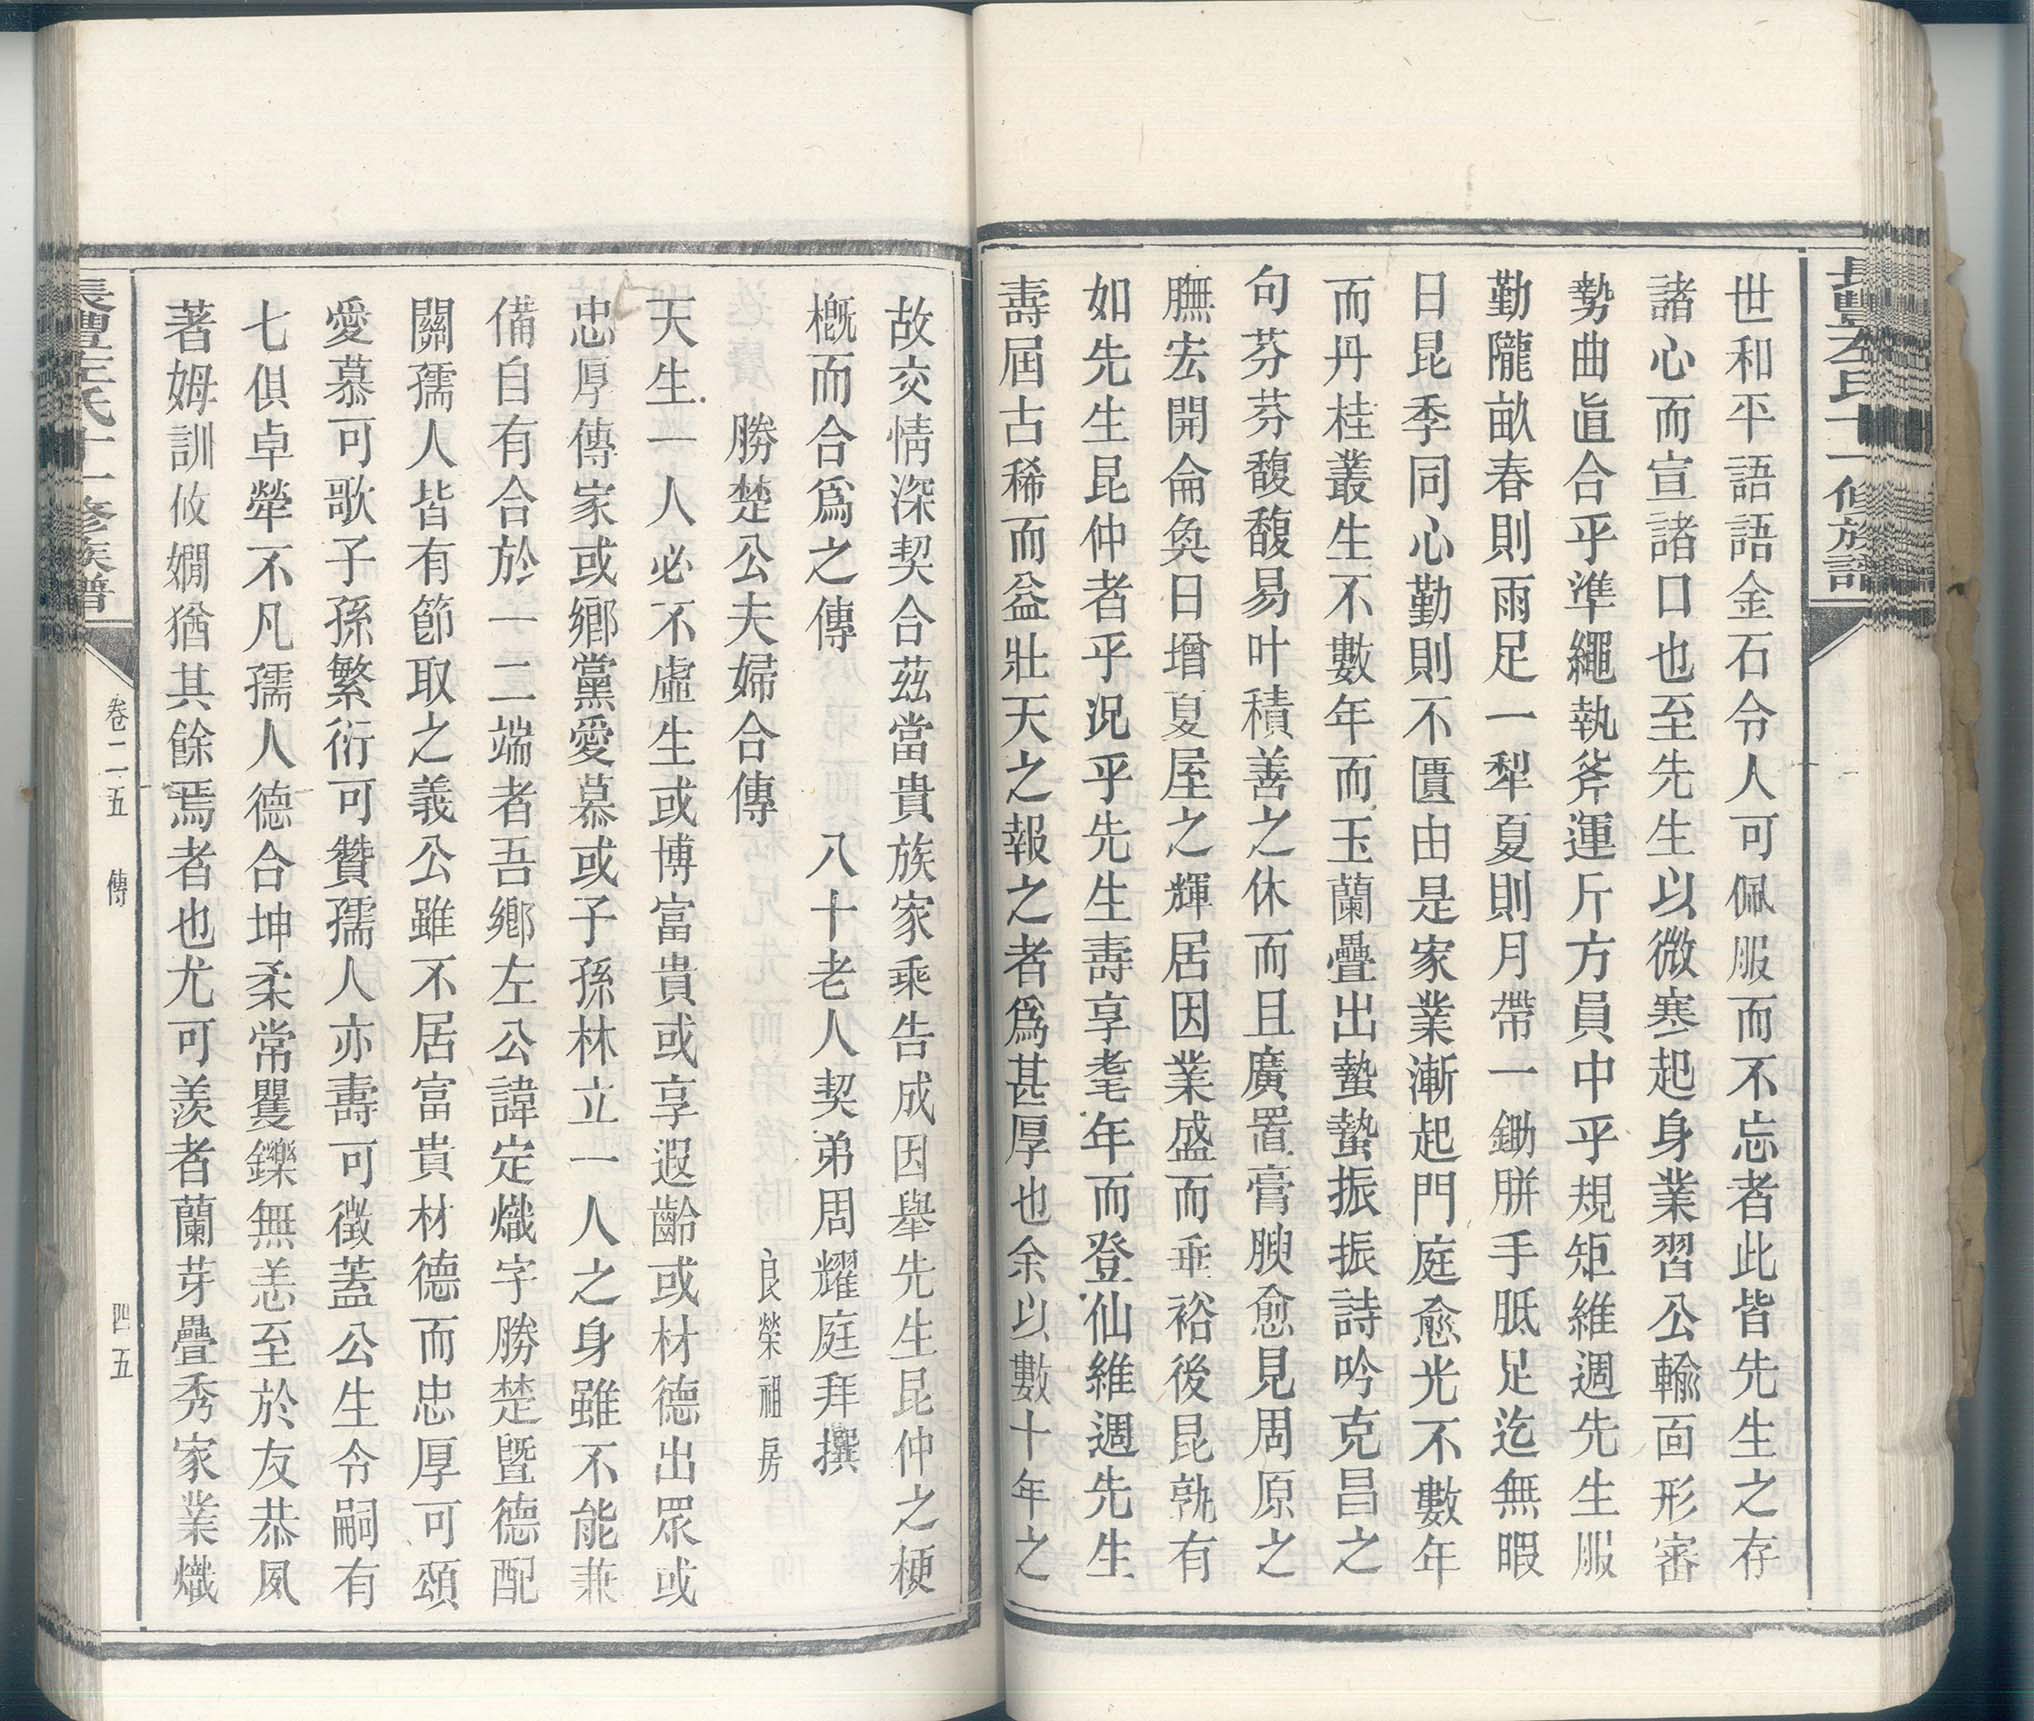 長豐左氏十一修族譜
世和平語語金石令人可佩服而不忘者此皆先生之存
諸心而宣諸口也至先生以微寒起身業習公輸面形審
勢曲直合乎準繩執斧運斤方員中乎規矩維週先生服
勤隴畝春則雨足一犁夏則月帶一鋤胼手胝足迄無暇
日昆季同心勤則不匱由是家業漸起門庭愈光不數年
而丹桂叢生不數年而玉蘭疊出蟄蟄振振詩吟克昌之
句芬芬馥馥易叶積善之休而且廣置膏腴愈見周原之
膴宏開侖奐日增夏屋之輝居因業盛而垂裕後昆孰有
如先生昆仲者乎況乎先生壽享耄年而登仙維週先生
壽屆古稀而益壯天之報之者爲甚厚也余以數十年之
故交情深契合茲當貴族家乘告成因舉先生昆仲之梗
概而合爲之傳　　　八十老人契弟周耀庭拜撰
勝楚公夫婦合傳　　　良榮祖房
天生一人必不虛生或博富貴或享遐齡或材德出眾或
忠厚傳家或鄉黨愛慕或子孫林立一人之身雖不能兼
備自有合於一二端者吾鄉左公諱定熾字勝楚暨德配
關孺人皆有節取之義公雖不居富貴材德而忠厚可頌
愛慕可歌子孫繁衍可贊孺人亦壽可徵蓋公生令嗣有
七俱卓犖不凡孺人德合坤柔常矍鑠無恙至於友恭夙
著姆訓攸嫺猶其餘焉者也尤可羨者蘭芽疊秀家業熾
長豐左氏十一修族譜
卷二五　傳　四五